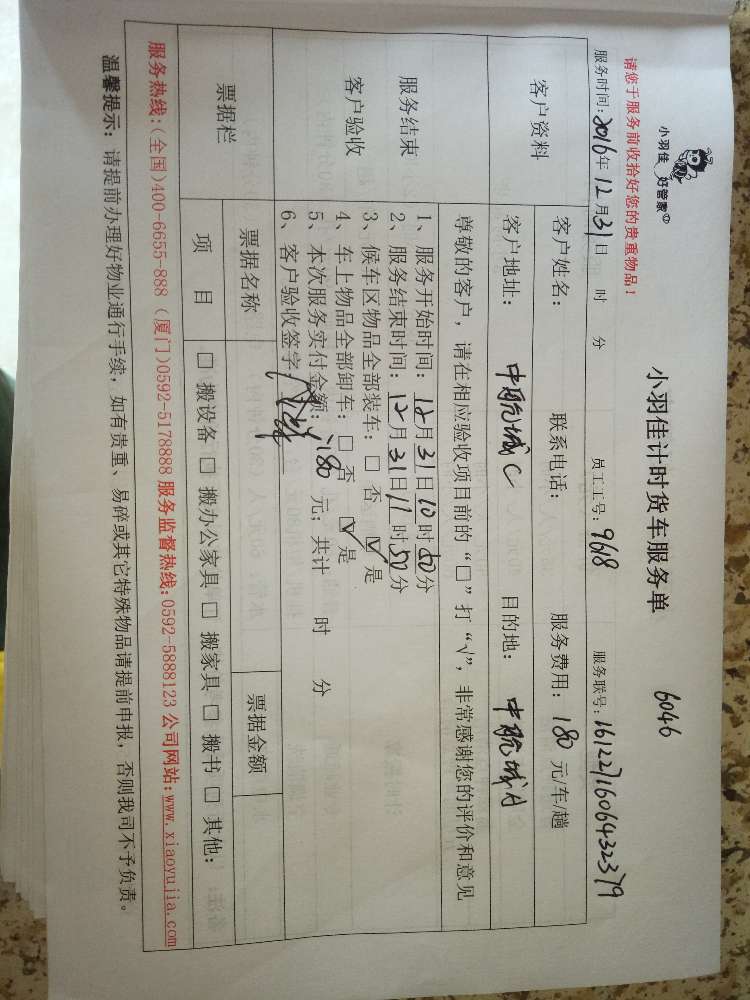 小羽佳 好管家
小羽佳计时货车服务单
6046
请您于服务前收拾好您的贵重物品!
服务时间:2016年12月31日 时 分 员工工号:968 服务联号:1612271606432379
客户资料
客户姓名: 联系电话: 服务费用:180元/车/趟
客户地址:中航城C 目的地:中航城A
服务结束
客户验收
尊敬的客户,请在相应验收项目前的“□”打“√”,非常感谢您的评价和意见
1、服务开始时间:12月31日10时50分
2、服务结束时间:12月31日11时50分
3、候车区物品全部装车:□ 否 ☑ 是
4、车上物品全部卸车:□ 否 ☑ 是
5、本次服务实付金额:180元;共计 时 分
6、客户验收签字:
票据栏
票据名称 票据金额
项 目 □ 搬设备 □ 搬办公家具 □ 搬家具 □ 搬书 □ 其他:
服务热线:(全国)400-6655-888 (厦门)0592-5178888 服务监督热线:0592-5888123 公司网站:www.xiaoyujia.com
温馨提示:请提前办理好物业通行手续,如有贵重、易碎或其它特殊物品请提前申报,否则我司不予负责。